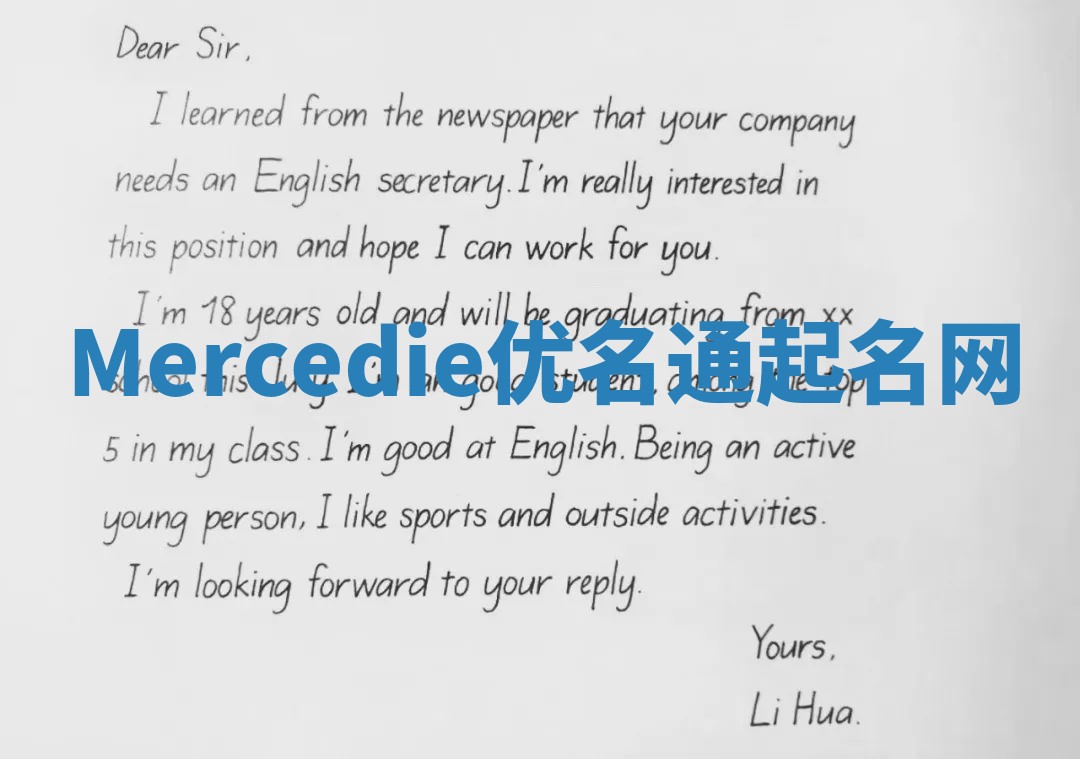 Dear Sir,
I learned from the newspaper that your company
needs an English secretary. I'm really interested in
this position and hope I can work for you.
I'm 18 years old and will be graduating from xx
Mercedie优名通起名网
school this July. I'm an good student, among the top
5 in my class. I'm good at English. Being an active
young person, I like sports and outside activities.
I'm looking forward to your reply.
Yours,
Li Hua.